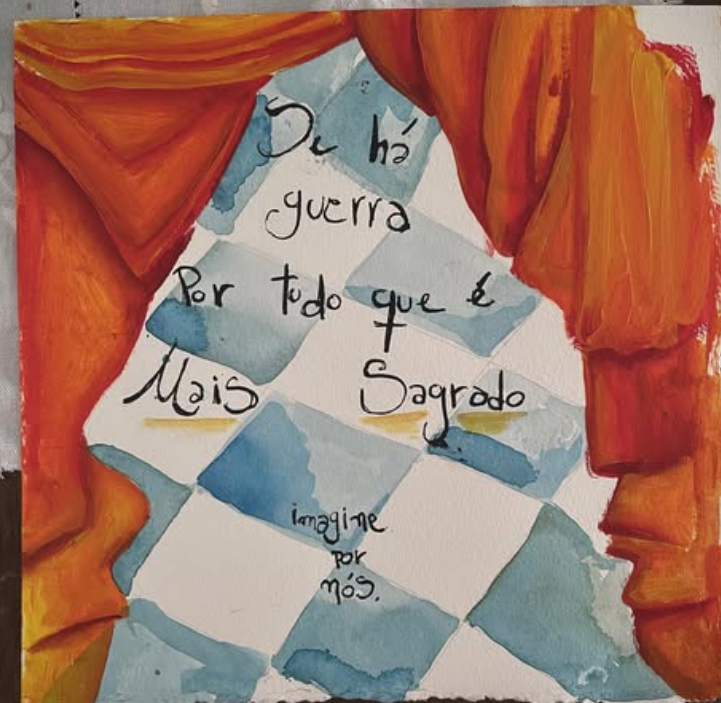 Se há
guerra
Por tudo que é
Mais Sagrado
imagine
por
nós.